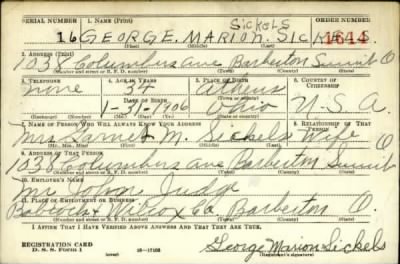 SERIAL NUMBER 1. NAME (Print) ORDER NUMBER
SICKELS
16 GEORGE. MARION. SICKELS 1644
(First) (Middle) (Last)
2. ADDRESS (Print)
1038 Columbus Ave Barberton Summit O
(Number and street or R. F. D. number) (Town) (County) (State)
3. TELEPHONE 4. AGE IN YEARS 5. PLACE OF BIRTH 6. COUNTRY OF CITIZENSHIP
none 34 Athens
DATE OF BIRTH
1-31-1906 Ohio U.S.A.
(Exchange) (Number) (Mo.) (Day) (Yr.) (State or country)
7. NAME OF PERSON WHO WILL ALWAYS KNOW YOUR ADDRESS 8. RELATIONSHIP OF THAT PERSON
Mrs M. Sickels Wife
(Mr., Mrs., Miss) (First) (Middle) (Last)
9. ADDRESS OF THAT PERSON
1038 Columbus Ave Barberton Summit O
(Number and street or R. F. D. number) (Town) (County) (State)
10. EMPLOYER'S NAME
Mr John Judge
11. PLACE OF EMPLOYMENT OR BUSINESS
Babcock & Wilcox Co Barberton O.
(Number and street or R. F. D. number) (Town) (County) (State)
I AFFIRM THAT I HAVE VERIFIED ABOVE ANSWERS AND THAT THEY ARE TRUE.
REGISTRATION CARD
D. S. S. Form 1 (over) 16-17105
George Marion Sickels
(Registrant's signature)